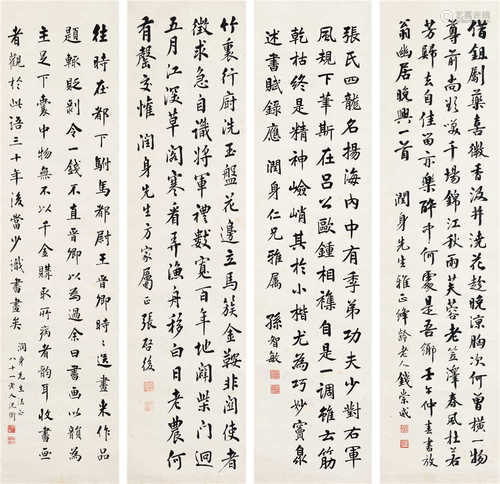 借鉏劚藥喜微香汲井澆花趁晚涼胸次何曾橫一物
尊前尚欲笑千場錦江秋雨芙蓉老笠澤春風杜若
芳歸去自佳留亦樂醉中何處是吾鄉壬午仲春書放
翁幽居晚興一首 潤身先生雅正 絳齡老人錢崇威
張氏四龍名揚海內中有季弟功夫少對右軍
風規下筆斯在呂公歐鍾相雜自是一調雖云筋
乾枯終是精神嶮峭其於小楷尤為巧妙竇臮
述書賦錄應 潤身仁兄雅屬 孫智敏
竹裏行廚洗玉盤花邊立馬簇金鞍非關使者
徵求急自識將軍禮數寬百年地闢柴門迥
五月江深草閣寒看弄漁舟移白日老農何
有罄交懽 潤身先生方家屬正 張啓後
往時在都下駙馬都尉王晉卿時時送畫來作品
題輒貶剝令一錢不直晉卿以為過余曰書畫以韻為
主足下囊中物無不以千金購取所病者韵耳收書畫
者觀於此語三十年後當少識書畫矣
潤身先生法正